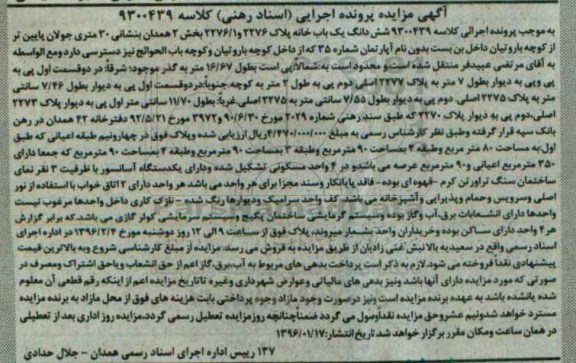 آگهی مزایده پرونده اجرایی (اسناد رهنی) کلاسه ۹۳۰۰۴۳۹
به موجب پرونده اجرائی کلاسه ۹۳۰۰۴۳۹ شش دانگ یک باب خانه پلاک ۲۲۷۶ و ۲۲۷۶/۱ بخش ۲ همدان بنشانی ۳۰ متری جولان پایین تر
از کوچه باروتیان داخل بن بست بدون نام آپارتمان شماره ۳۵ که از داخل کوچه باروتیان و کوچه باب الحوائج نیز دسترسی دارد و مع الواسطه
به آقای مرتضی عبیدفر منتقل شده است و محدود است به: شمالاً: پی است بطول ۱۶/۶۷ متر به گذر موجود؛ شرقاً: در دو قسمت اول پی به
پی و پی به دیوار بطول ۷ متر به پلاک ۲۲۷۷ اصلی دوم پی به طول ۲ متر به کوچه. جنوباً: در دو قسمت اول پی به دیوار بطول ۷/۴۶ سانتی
متر به پلاک ۲۲۷۵ اصلی، دوم پی به دیوار بطول ۷/۵۵ سانتی متر به ۲۲۷۵ اصلی. غرباً: بطول ۱۱/۷۰ سانتی متر اول پی به دیوار پلاک ۲۲۷۳
اصلی، دوم پی به دیوار پلاک ۲۲۷۰ که طبق سند رهنی شماره ۲۰۲۹ مورخ ۹۰/۶/۳۰ و ۳۹۷۲ مورخ ۹۲/۵/۲۱ دفترخانه ۴۲ همدان در رهن
بانک سپه قرار گرفته و طبق نظر کارشناس رسمی به مبلغ ۴/۴۷۰/۰۰۰/۰۰۰ ریال ارزیابی شده و پلاک فوق در چهار و نیم طبقه اعیانی که طبق
اول به مساحت ۸۰ متر مربع وطبقه ۲ بمساحت ۹۰ مترمربع وطبقه ۳ بمساحت ۹۰ مترمربع وطبقه ۴ بمساحت ۹۰ مترمربع که جمعا دارای
۳۵۰ مترمربع اعیانی و ۹۰ مترمربع عرصه می باشد و در ۴ واحد مسکونی تشکیل شده و دارای یکدستگاه آسانسور با ظرفیت ۳ نفر نمای
ساختمان سنگ تراورتن کرم - قهوه ای بوده - فاقد پایانکار و سند مجزا برای هر واحد می باشد هر واحد دارای ۲ اتاق خواب با استفاده از نور
اصلی و سرویس و حمام و پذیرایی و آشپزخانه می باشد کف واحد سرامیک و دیوارها رنگ شده - نازک کاری داخل واحدها مرغوب نیست
واحدها دارای انشعابات برق، آب و گاز بوده و سیستم گرمایشی ساختمان پکیج و سیستم سرمایشی کولر گازی می باشد. که برابر گزارش
هر ۴ واحد دارای ساکن بوده و خریداران واحد بشمار میروند. پلاک فوق از ساعت ۹ الی ۱۲ روز دوشنبه مورخ ۱۳۹۶/۲/۴ در اداره اجرای
اسناد رسمی واقع در سعیدیه بالا نبش غنی زادیان از طریق مزایده به فروش می رسد. مزایده از مبلغ کارشناسی شروع و به بالاترین قیمت
پیشنهادی نقداً فروخته می شود. لازم به ذکر است پرداخت بدهی های مربوط به آب، برق، گاز اعم از حق انشعاب و یا حق اشتراک و مصرف در
صورتی که مورد مزایده دارای آنها باشد و نیز بدهی های مالیاتی و عوارض شهرداری و غیره تا تاریخ مزایده اعم از اینکه رقم قطعی آن معلوم
شده یا نشده باشد به عهده برنده مزایده است و نیز در صورت وجود مازاد وجوه پرداختی بابت هزینه های فوق از محل مازاد به برنده مزایده
مسترد خواهد شد و نیم عشر و حق مزایده نقداً وصول می گردد ضمناً چنانچه روز مزایده تعطیل رسمی گردد، مزایده روز اداری بعد از تعطیلی
در همان ساعت و مکان مقرر برگزار خواهد شد تاریخ انتشار: ۱۳۹۶/۰۱/۱۷
۱۳۷ رییس اداره اجرای اسناد رسمی همدان - جلال حدادی